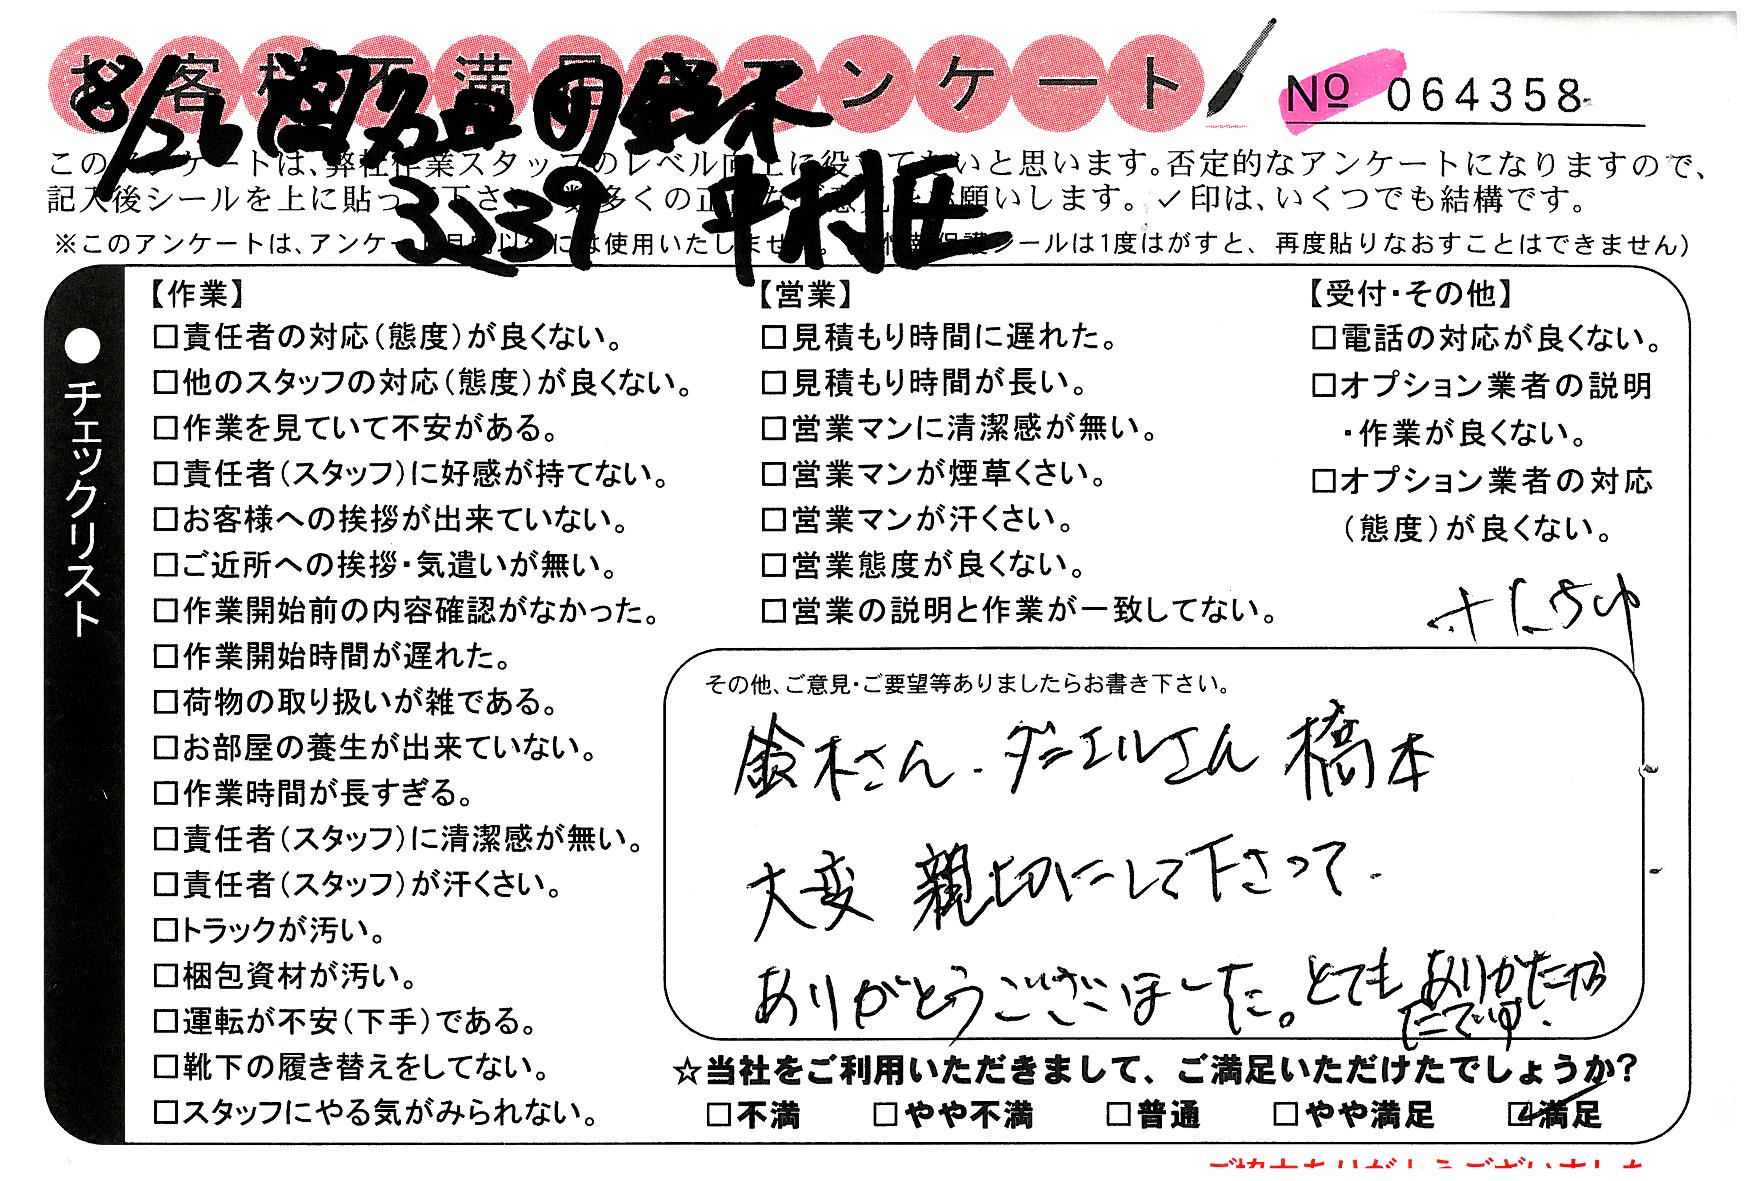 お客様不満足度アンケート
№ 064358
8/26
3239
このアンケートは、弊社作業スタッフのレベル向上に役立てたいと思います。否定的なアンケートになりますので、
記入後シールを上に貼って下さい。数多くの正直なご意見をお願いします。✓印は、いくつでも結構です。
※このアンケートは、アンケート目的以外には使用いたしません。 シールは1度はがすと、再度貼りなおすことはできません)
●チェックリスト
【作業】
□責任者の対応(態度)が良くない。
□他のスタッフの対応(態度)が良くない。
□作業を見ていて不安がある。
□責任者(スタッフ)に好感が持てない。
□お客様への挨拶が出来ていない。
□ご近所への挨拶・気遣いが無い。
□作業開始前の内容確認がなかった。
□作業開始時間が遅れた。
□荷物の取り扱いが雑である。
□お部屋の養生が出来ていない。
□作業時間が長すぎる。
□責任者(スタッフ)に清潔感が無い。
□責任者(スタッフ)が汗くさい。
□トラックが汚い。
□梱包資材が汚い。
□運転が不安(下手)である。
□靴下の履き替えをしてない。
□スタッフにやる気がみられない。
【営業】
□見積もり時間に遅れた。
□見積もり時間が長い。
□営業マンに清潔感が無い。
□営業マンが煙草くさい。
□営業マンが汗くさい。
□営業態度が良くない。
□営業の説明と作業が一致してない。
【受付・その他】
□電話の対応が良くない。
□オプション業者の説明
・作業が良くない。
□オプション業者の対応
(態度)が良くない。
その他、ご意見・ご要望等ありましたらお書き下さい。
鈴木さん、ダニエルさん 橋本
大変 親切にして下さって、
ありがとうございました。とても ありがたかっ
たです。
☆当社をご利用いただきまして、ご満足いただけたでしょうか?
□不満 □やや不満 □普通 □やや満足 ☑満足
ご協力ありがとうございました